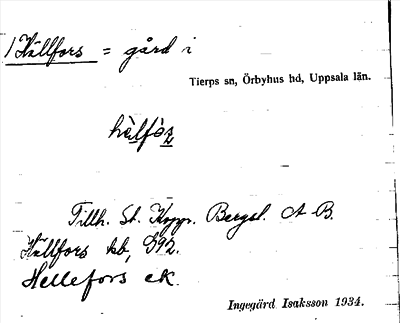 / Hällfors = gård i
Tierps sn, Örbyhus hd, Uppsala län.
hèlfòʂ
Tillh. St. Kopp. Bergsl. A-B.
Hällfors kb, G92.
Hellefors ek.
Ingegärd Isaksson 1934.